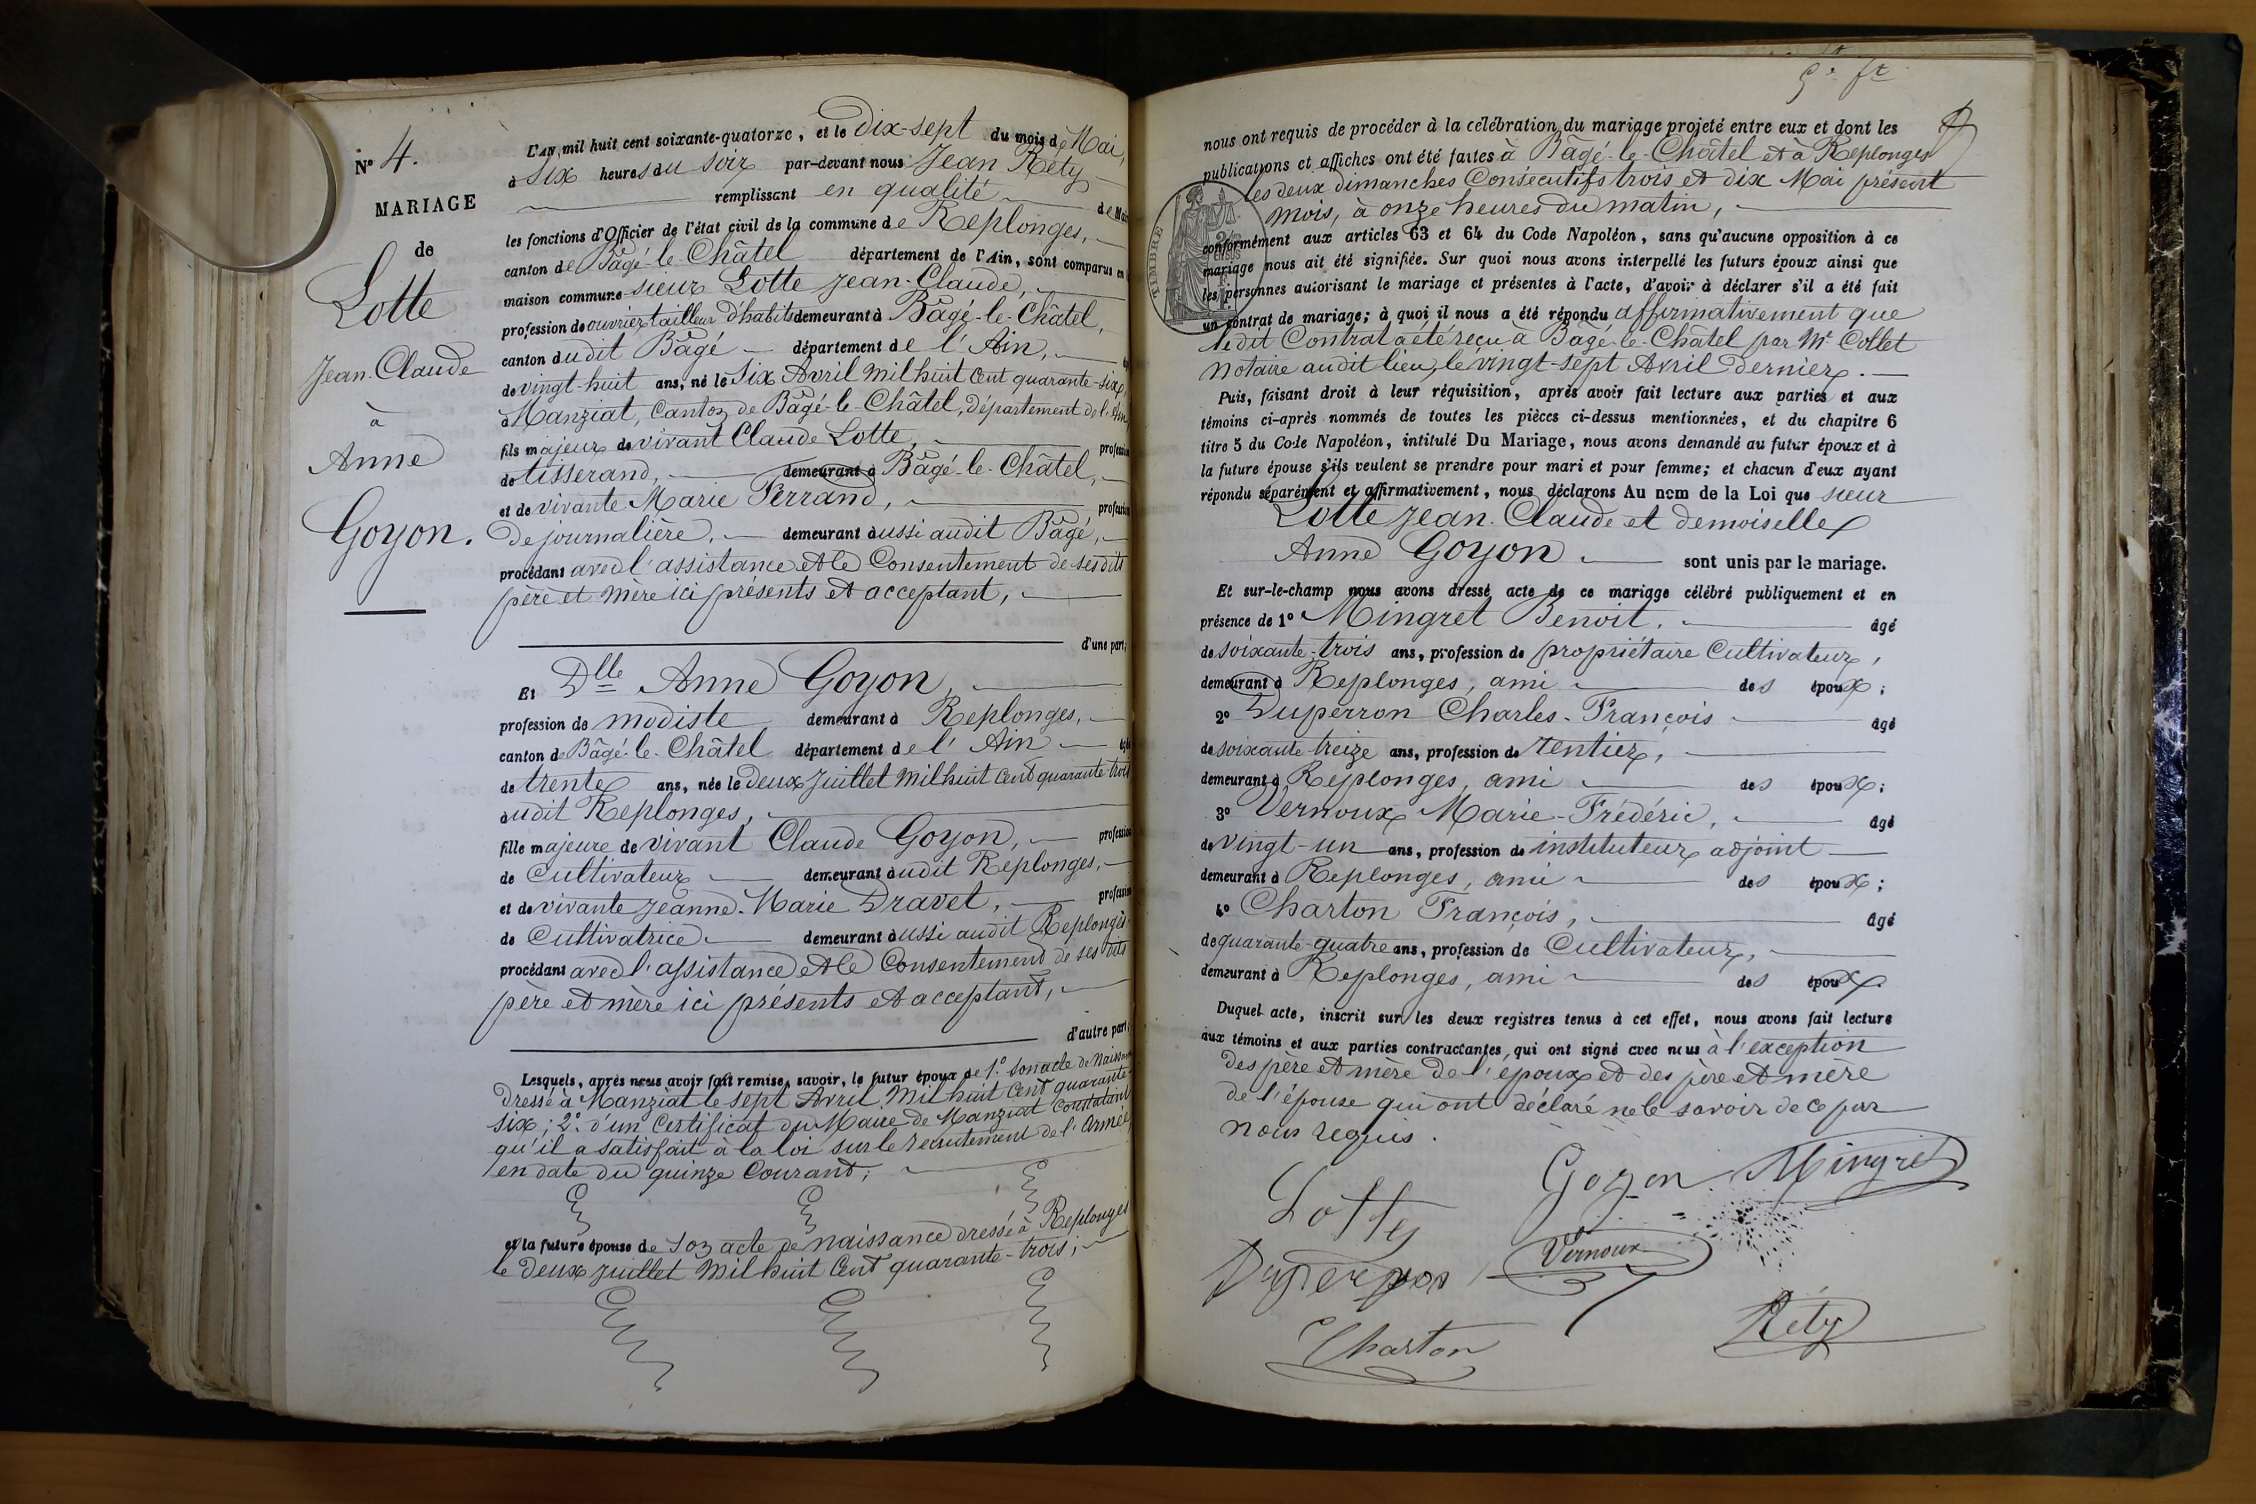 N° 4.
MARIAGE
de
Lotte
Jean-Claude
à
Anne
Goyon.
L'AN mil huit cent soixante-quatorze, et le Dix-sept du mois de Mai,
à six heures du soir par-devant nous Jean Réty
remplissant en qualité de Maire
les fonctions d'Officier de l'état civil de la commune de Replonges,
canton de Bâgé-le-Châtel département de l'Ain, sont comparus en
maison commune sieur Lotte Jean-Claude,
profession de ouvrier tailleur d'habits demeurant à Bâgé-le-Châtel,
canton dudit Bâgé département de l'Ain,
de vingt-huit ans, né le Six Avril mil huit cent quarante-six,
à Manziat, Canton de Bâgé-le-Châtel, département de l'Ain
fils majeur de vivant Claude Lotte, profession
de tisserand, demeurant à Bâgé-le-Châtel,
et de vivante Marie Ferrand, profession
de journalière, demeurant aussi audit Bâgé,
procédant avec l'assistance et le Consentement de sesdits
père et mère ici présents et acceptant,
d'une part;
Et Dlle Anne Goyon,
profession de modiste demeurant à Replonges,
canton de Bâgé-le-Châtel département de l'Ain
de trente ans, née le deux Juillet mil huit cent quarante trois
audit Replonges,
fille majeure de vivant Claude Goyon, profession
de Cultivateur demeurant audit Replonges,
et de vivante Jeanne-Marie Dravet, profession
de Cultivatrice demeurant aussi audit Replonges
procédant avec l'assistance et le Consentement de ses dits
père et mère ici présents et acceptant,
d'autre part;
Lesquels, après nous avoir fait remise, savoir, le futur époux de 1° son acte de naissance
dressé à Manziat le sept Avril mil huit cent quarante
six; 2° d'un Certificat du Maire de Manziat Constatant
qu'il a satisfait à la loi sur le recrutement de l'Armée
en date du quinze Courant;
et la future épouse de son acte de naissance dressé à Replonges
le deux Juillet mil huit cent quarante-trois;
nous ont requis de procéder à la célébration du mariage projeté entre eux et dont les
publications et affiches ont été faites à Bâgé-le-Châtel et à Replonges
les deux dimanches Consécutifs trois et dix Mai présent
mois, à onze heures du matin,
TIMBRE
conformément aux articles 63 et 64 du Code Napoléon, sans qu'aucune opposition à ce
mariage nous ait été signifiée. Sur quoi nous avons interpellé les futurs époux ainsi que
les personnes autorisant le mariage et présentes à l'acte, d'avoir à déclarer s'il a été fait
un contrat de mariage; à quoi il nous a été répondu affirmativement que
ledit Contrat a été reçu à Bâgé-le-Châtel par Me Collet
notaire audit lieu, le vingt-sept Avril dernier.
Puis, faisant droit à leur réquisition, après avoir fait lecture aux parties et aux
témoins ci-après nommés de toutes les pièces ci-dessus mentionnées, et du chapitre 6
titre 5 du Code Napoléon, intitulé Du Mariage, nous avons demandé au futur époux et à
la future épouse s'ils veulent se prendre pour mari et pour femme; et chacun d'eux ayant
répondu séparément et affirmativement, nous déclarons Au nom de la Loi que sieur
Lotte Jean-Claude et demoiselle
Anne Goyon sont unis par le mariage.
Et sur-le-champ nous avons dressé acte de ce mariage célébré publiquement et en
présence de 1° Mingret Benoit, âgé
de soixante-trois ans, profession de propriétaire Cultivateur,
demeurant à Replonges, ami des époux;
2° Duperron Charles-François âgé
de soixante treize ans, profession de rentier,
demeurant à Replonges, ami des époux;
3° Vernoux Marie-Frédéric, âgé
de vingt-un ans, profession de instituteur adjoint
demeurant à Replonges, ami des époux;
4° Charton François, âgé
de quarante-quatre ans, profession de Cultivateur,
demeurant à Replonges, ami des époux.
Duquel acte, inscrit sur les deux registres tenus à cet effet, nous avons fait lecture
aux témoins et aux parties contractantes, qui ont signé avec nous à l'exception
des père et mère de l'époux et des père et mère
de l'épouse qui ont déclaré ne le savoir de ce par
nous requis.
Lotte Goyon Mingret
Duperron Vernoux
Charton Réty